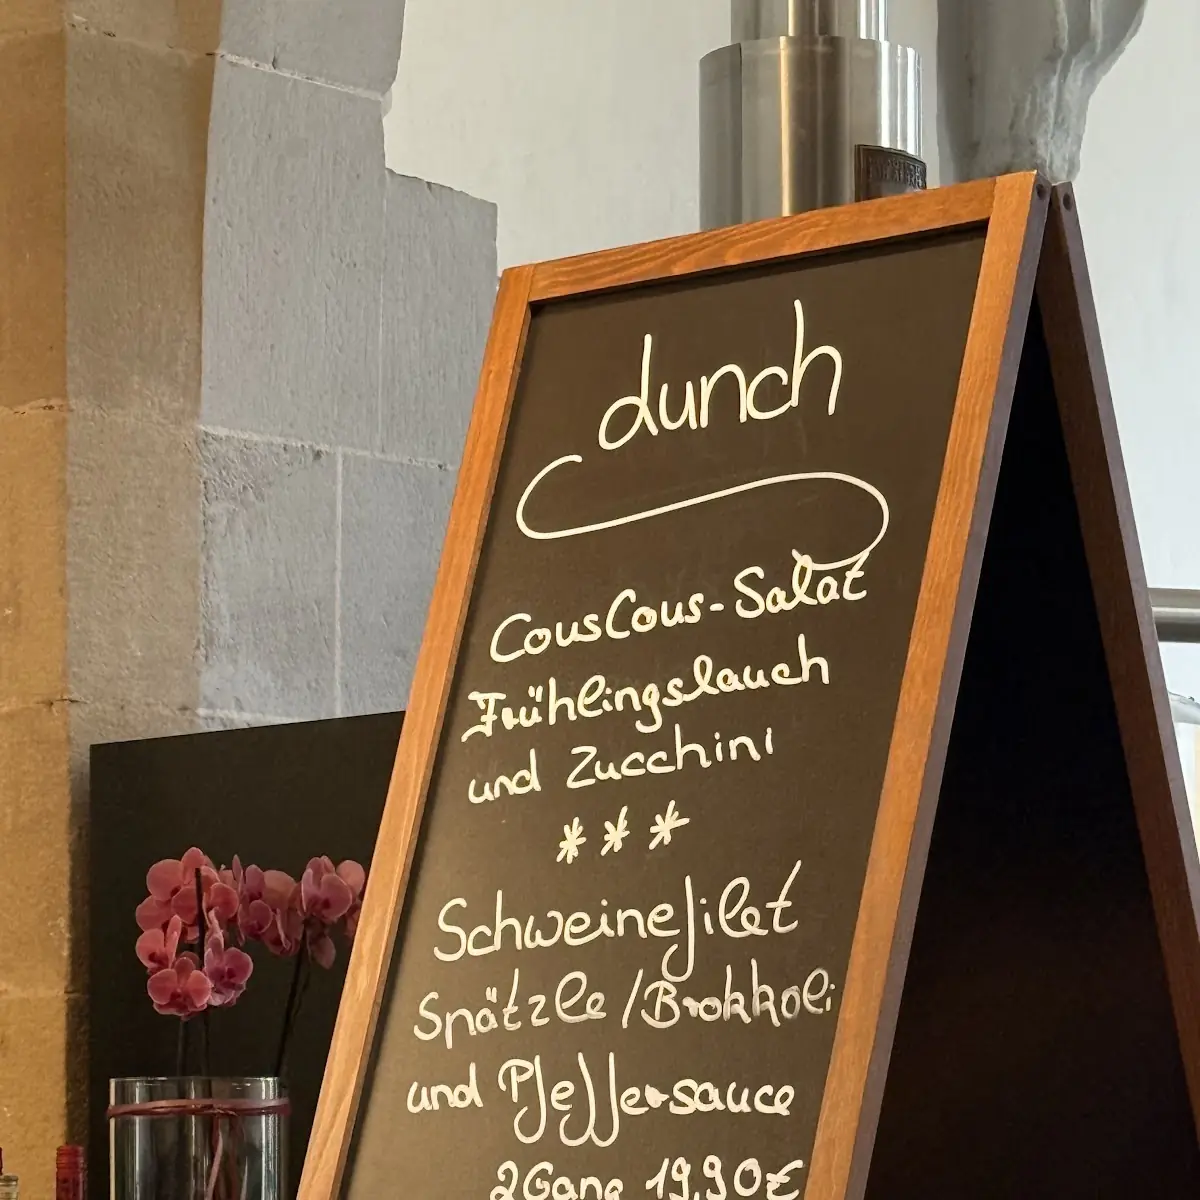 dunch
CousCous-Salat
Frühlingslauch
und Zucchini
***
Schweinefilet
Spätzle/Brokkoli
und Pfeffersauce
2Gang 19,90€